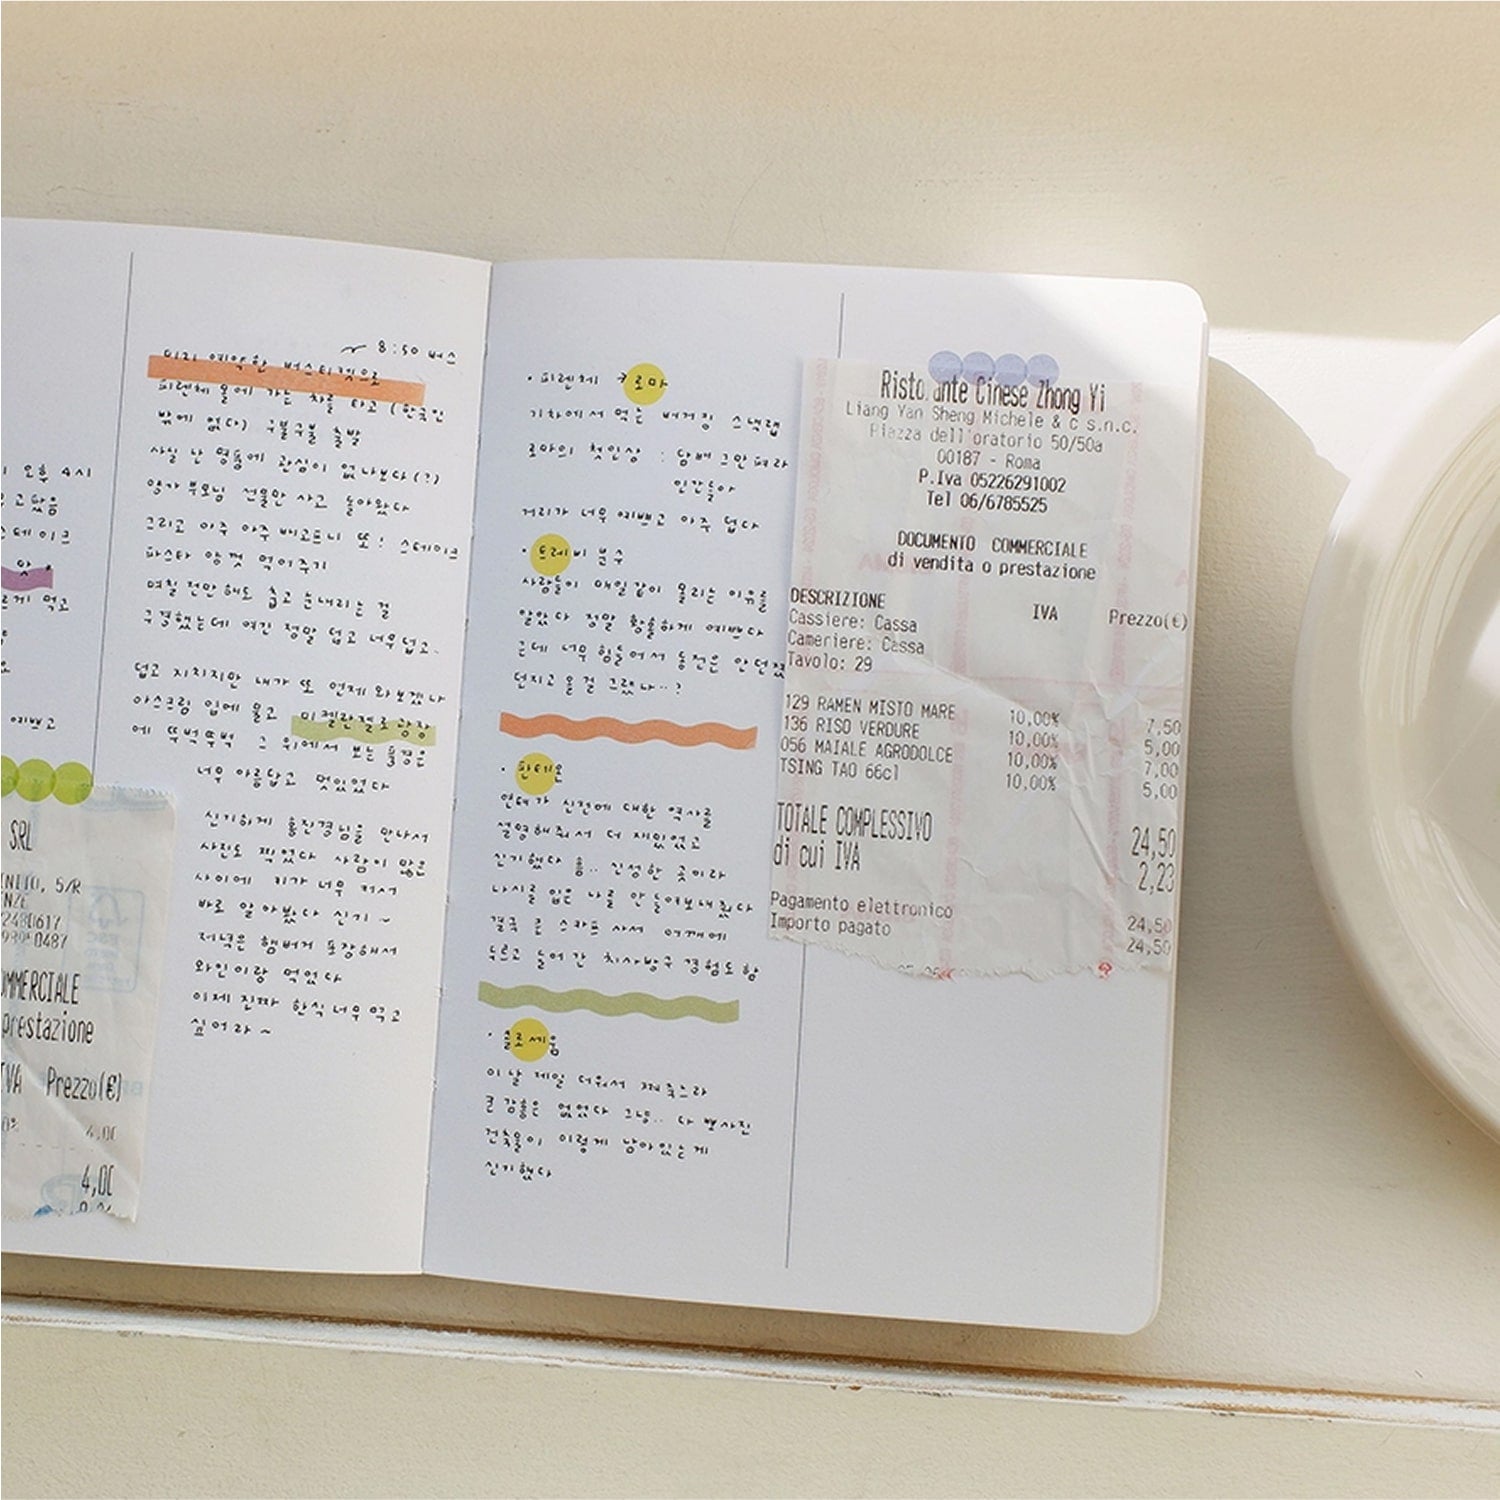 오후 4시
고 왔음
스테이크
맛,
르게 먹고
예쁘고
SRL
5/R
COMMERCIALE
prestazione
IVA Prezzo(€)
4,00
4,00
8:50 버스
미리 예약한 버스티켓으로
피렌체 몰에 가는 차를 타고 (한국인
밖에 없다) 구불구불 출발
사실 난 명품에 관심이 없나보다(?)
양가부모님 선물만 사고 돌아왔다
그리고 아주 아주 배고프니 또! 스테이크
파스타 양껏 먹어주기
며칠 전만해도 춥고 눈내리는 걸
구경했는데 여긴 정말 덥고 너무덥고.
덥고 지치지만 내가 또 언제 와보겠나
아스크림 입에 물고 미켈란젤로 광장
에 뚜벅뚜벅 그 위에서 보는 풍경은
너무 아름답고 멋있었다
신기하게 홍진경님을 만나서
사진도 찍었다 사람이 많은
사이에 키가 너무 커서
바로 알아봤다 신기~
저녁은 햄버거 포장해서
와인이랑 먹었다
이제 진짜 한식 너무 먹고
싶어라~
· 피렌체 → 로마
기차에서 먹는 버거킹 스낵랩
로마의 첫인상 : 담배 그만펴라
인간들아
거리가 너무 예쁘고 아주 덥다
· 트레비 분수
사람들이 매일같이 몰리는 이유를
알았다 정말 황홀하게 예쁘다
근데 너무 힘들어서 동전은 안던졌
던지고 올걸 그랬나..?
· 판테온
연태가 신전에 대한 역사를
설명해줘서 더 재밌었고
신기했다 흠.. 신성한 곳이라
나시를 입은 나를 안 들여보내줬다
결국 큰 스카프 사서 어깨에
두르고 들어간 치사빵구 경험도 함
· 콜로세움
이 날 제일 더워서 쪄죽느라
큰 감흥은 없었다 그냥.. 다 뿌사진
건축물이 이렇게 남아있는게
신기했다
Ristorante Cinese Zhong Yi
Liang Yan Sheng Michele & c s.n.c.
Piazza dell'oratorio 50/50a
00187 - Roma
P.Iva 05226291002
Tel 06/6785525
DOCUMENTO COMMERCIALE
di vendita o prestazione
DESCRIZIONE IVA Prezzo(€)
Cassiere: Cassa
Cameriere: Cassa
Tavolo: 29
129 RAMEN MISTO MARE 10,00% 7,50
136 RISO VERDURE 10,00% 5,00
056 MAIALE AGRODOLCE 10,00% 7,00
TSING TAO 66cl 10,00% 5,00
TOTALE COMPLESSIVO 24,50
di cui IVA 2,23
Pagamento elettronico 24,50
Importo pagato 24,50